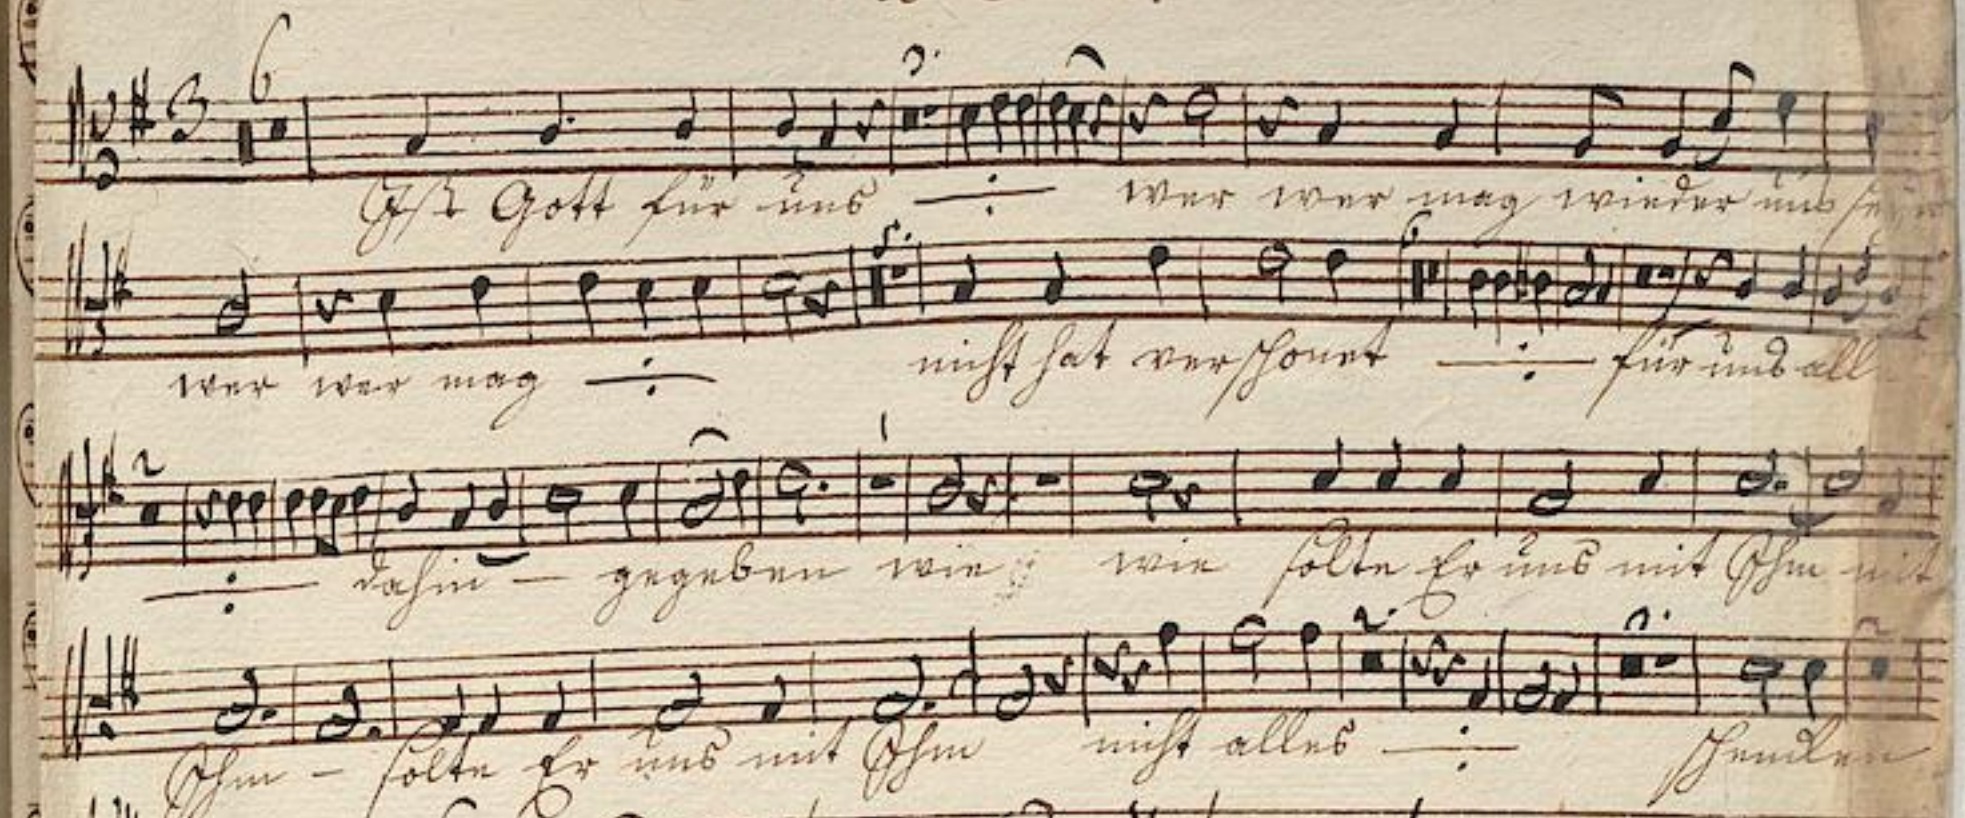 6
Ist Gott für uns ÷ wer wer mag wieder uns seyn
wer wer mag ÷ nicht hat verschonet ÷ für uns all
÷ dahin – gegeben wie wie solte Er uns mit Ihm mit
Ihm – solte Er uns mit Ihm nicht alles ÷ schencken